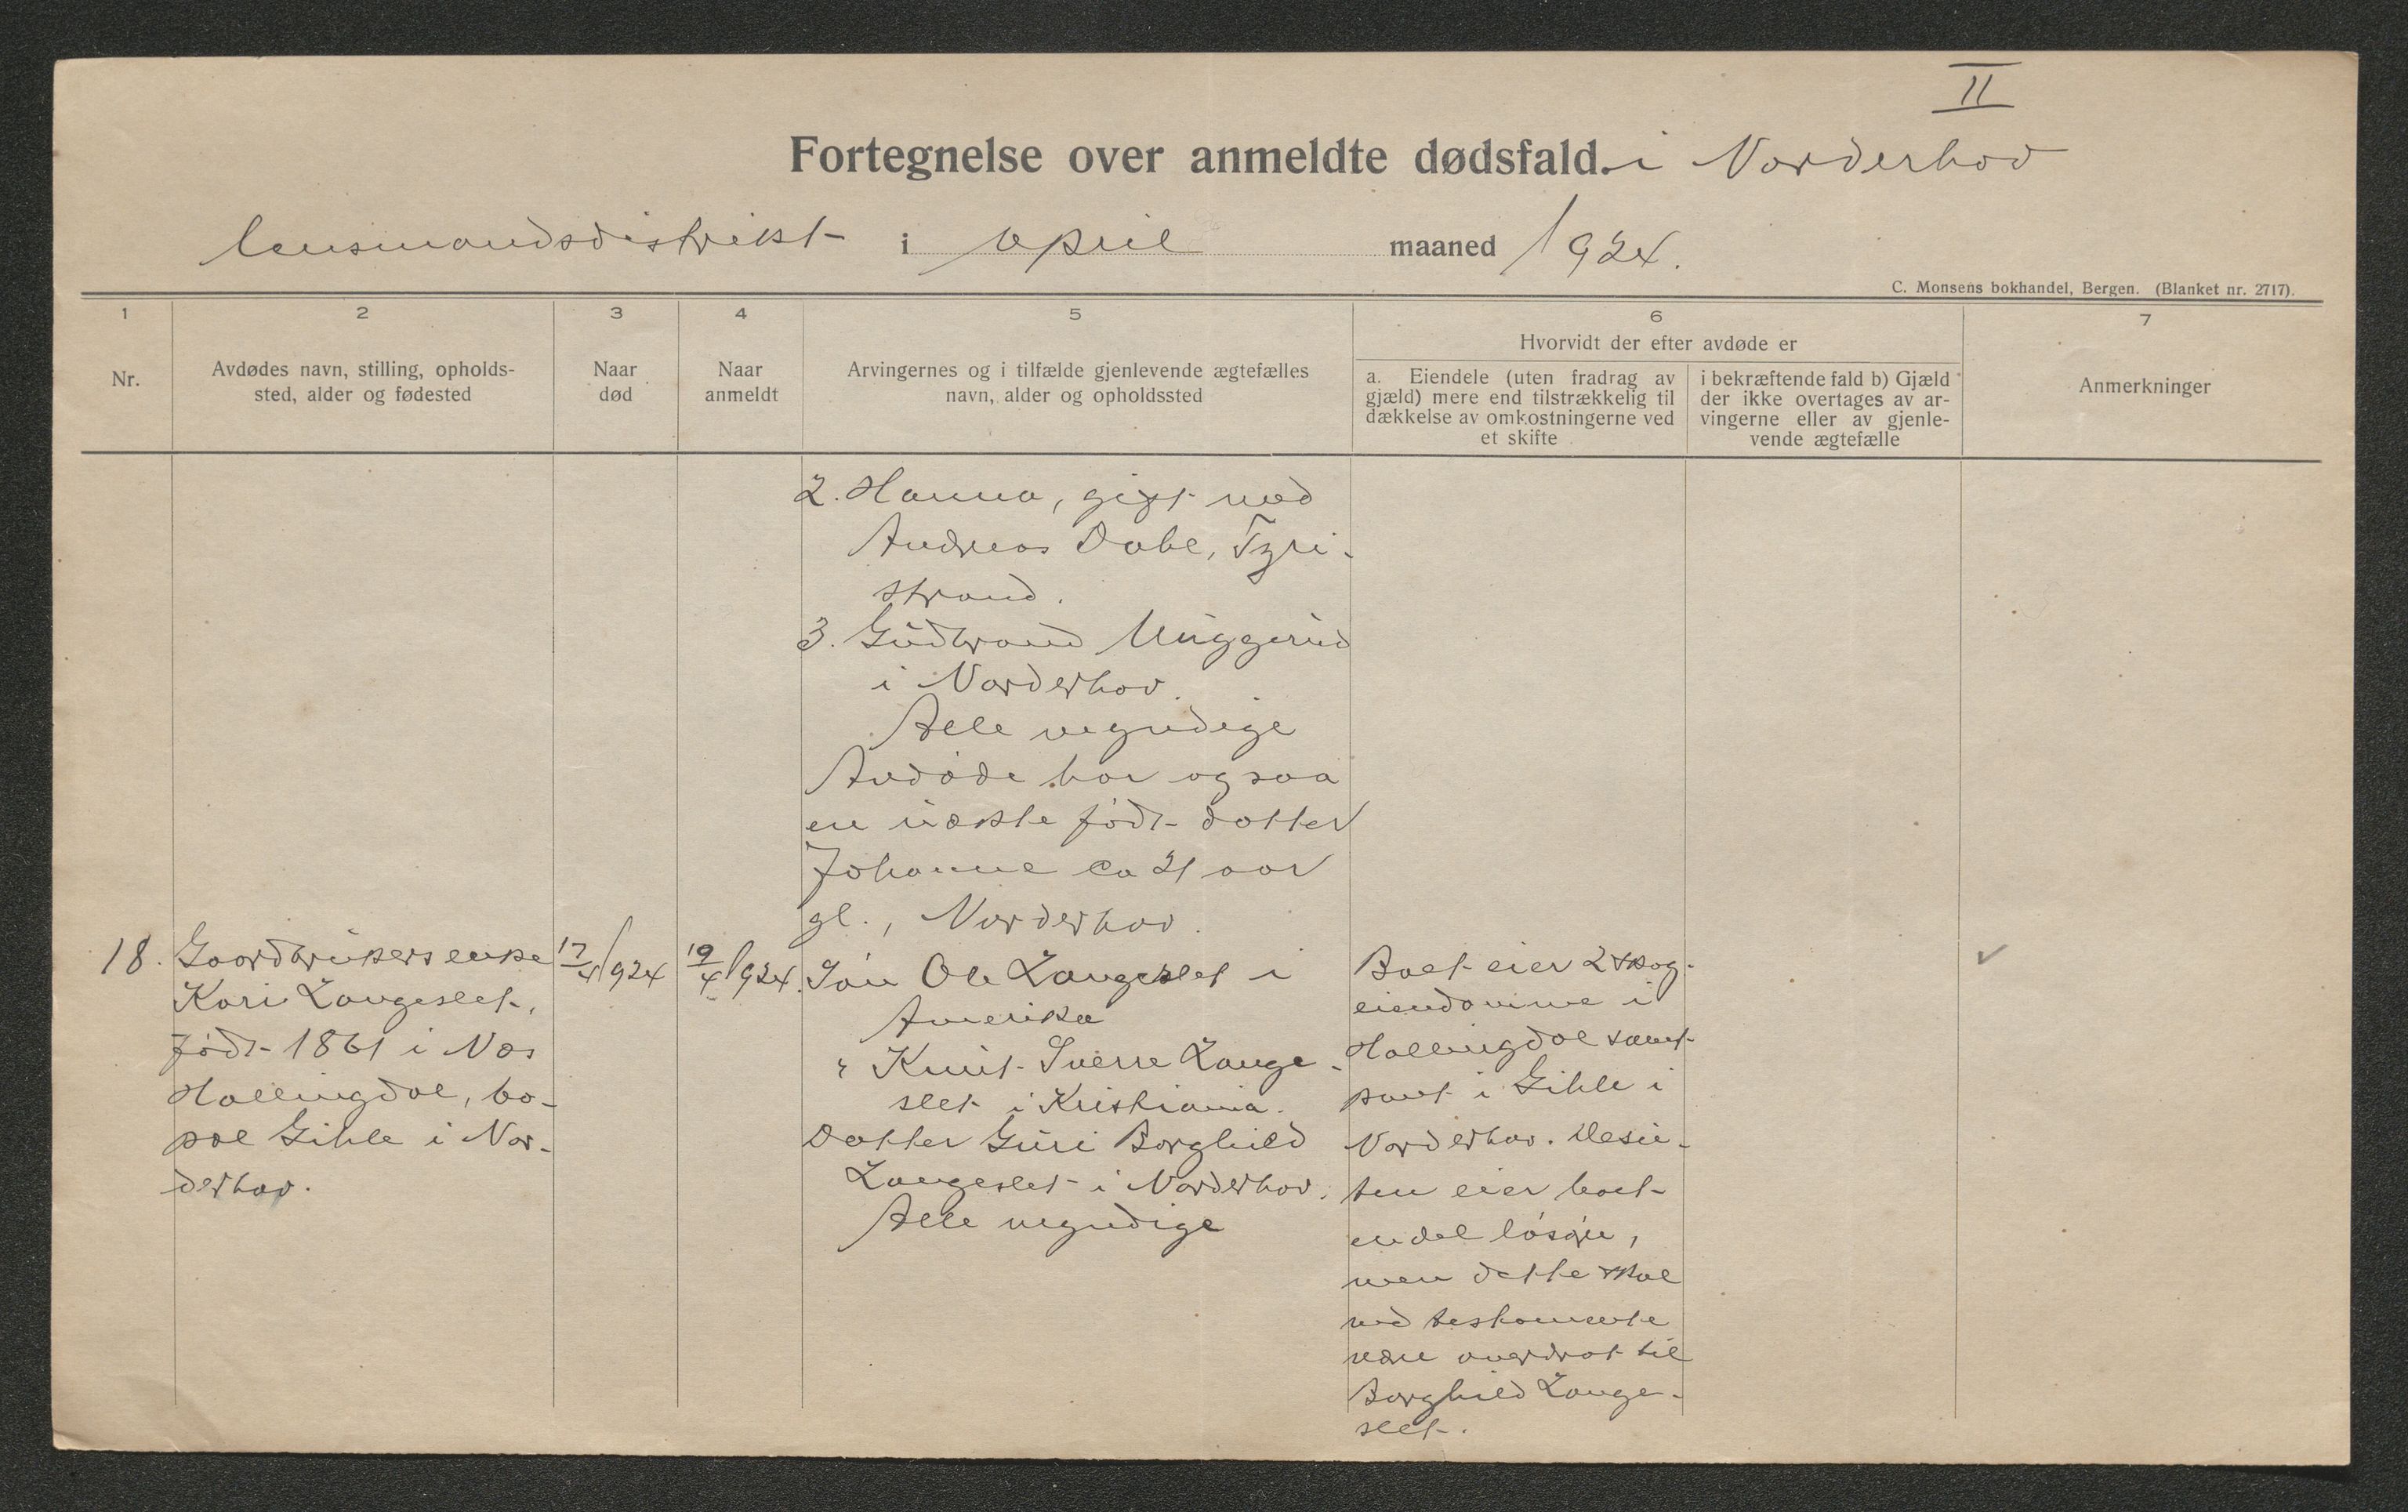 II
Fortegnelse over anmeldte dødsfald. i Norderhov
lensmandsdistrikt i april maaned 1924.
C. Monsens bokhandel, Bergen. (Blanket nr. 2717).
1
2
3
4
5
6
7
Nr.
Avdødes navn, stilling, opholds-
sted, alder og fødested
Naar
død
Naar
anmeldt
Arvingernes og i tilfælde gjenlevende ægtefælles
navn, alder og opholdssted
Hvorvidt der efter avdøde er
a. Eiendele (uten fradrag av
gjæld) mere end tilstrækkelig til
dækkelse av omkostningerne ved
et skifte
i bekræftende fald b) Gjæld
der ikke overtages av ar-
vingerne eller av gjenle-
vende ægtefælle
Anmerkninger
2. Hanna, gift med
Andreas Dale, Tyri-
strand.
3. Gudbrand Muggerud
i Norderhov.
Alle myndige
Avdøde har ogsaa
en uækte født datter
Johanne ca 21 aar
gl., Norderhov.
18.
Gaardbrukers enke
Kari Langeslet,
født 1861 i Nes
Hallingdal, bo-
pæl Gihle i Nor-
derhov.
17/4 1924
19/4 1924.
Søn Ole Langeslet i
Amerika
" Knut Sverre Lange-
slet i Kristiania.
Datter Guri Borghild
Langeslet i Norderhov.
Alle myndige
Boet eier 2 skog-
eiendomme i
Hallingdal samt
pant i Gihle i
Norderhov. Desu-
ten eier boet
endel løsøre,
men dette skal
ved testamente
være overdrat til
Borghild Lange-
slet.
✓